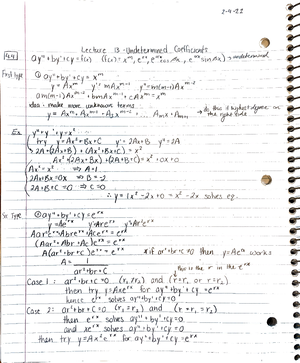 2-4-22
Lecture 13 - Undetermined Coefficients
4.4 ay"+by'+cy=f(x) (f(x)= x^m, e^rx, e^αx cos βx, e^αx sin βx) → undetermined
First type ① ay"+by'+cy = x^m
y = Ax^m y' = mAx^m-1 y" = m(m-1)Ax^m-2
am(m-1)Ax^m-2 + bmAx^m-1 + cAx^m = x^m
idea: make more unknown terms
A₁x^m + A₂x^m-1 + A₃x^m-2 ... A_m x + A_m+1 → do this is highest degree on the right side
Ex y"+y'+y = x²
try y = Ax²+Bx+C y' = 2Ax+B y" = 2A
2A + (2Ax+B) + (Ax²+Bx+C) = x²
Ax² + (2Ax+Bx) + (2A+B+C) = x² + 0x + 0
Ax² = x² ⇒ A=1
2Ax+Bx=0x ⇒ B=-2
2A+B+C=0 ⇒ C=0
∴ y = 1x²-2x+0 = x²-2x solves eq.
② ay"+by'+cy = e^rx
y = Ae^rx y' = Are^rx y" = Ar²e^rx
Aar²e^rx + Abre^rx + Ace^rx = e^rx
(Aar²+Abr+Ac)e^rx = e^rx
A(ar²+br+c)e^rx = e^rx * if ar²+br+c ≠0 then y=Ae^rx works
A = 1/(ar²+br+c)
this is the r in the e^rx
Case 1: ar²+br+c = 0 (r₁≠r₂) and (r=r₁ or r=r₂)
then try y=Axe^rx for ay"+by'+cy = e^rx
hence e^rx solves ay"+by'+cy=0
Case 2: ar²+br+c=0 (r₁=r₂) and (r=r₁=r₂)
then e^rx solves ay"+by'+cy=0
and xe^rx solves ay"+by'+cy=0
then try y=Ax²e^rx for ay"+by'+cy=e^rx